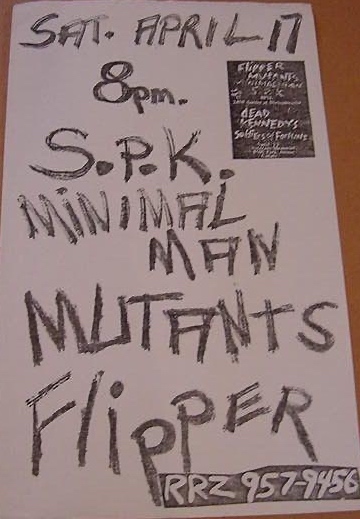 SAT. APRIL 17
8pm.
FLIPPER
MUTANTS
MINIMAL MAN
S.P.K
DEAD
KENNEDYS
SOLDIERS OF FORTUNE
S.P.K.
MINIMAL
MAN
MUTANTS
Flipper
RRZ 957-9456